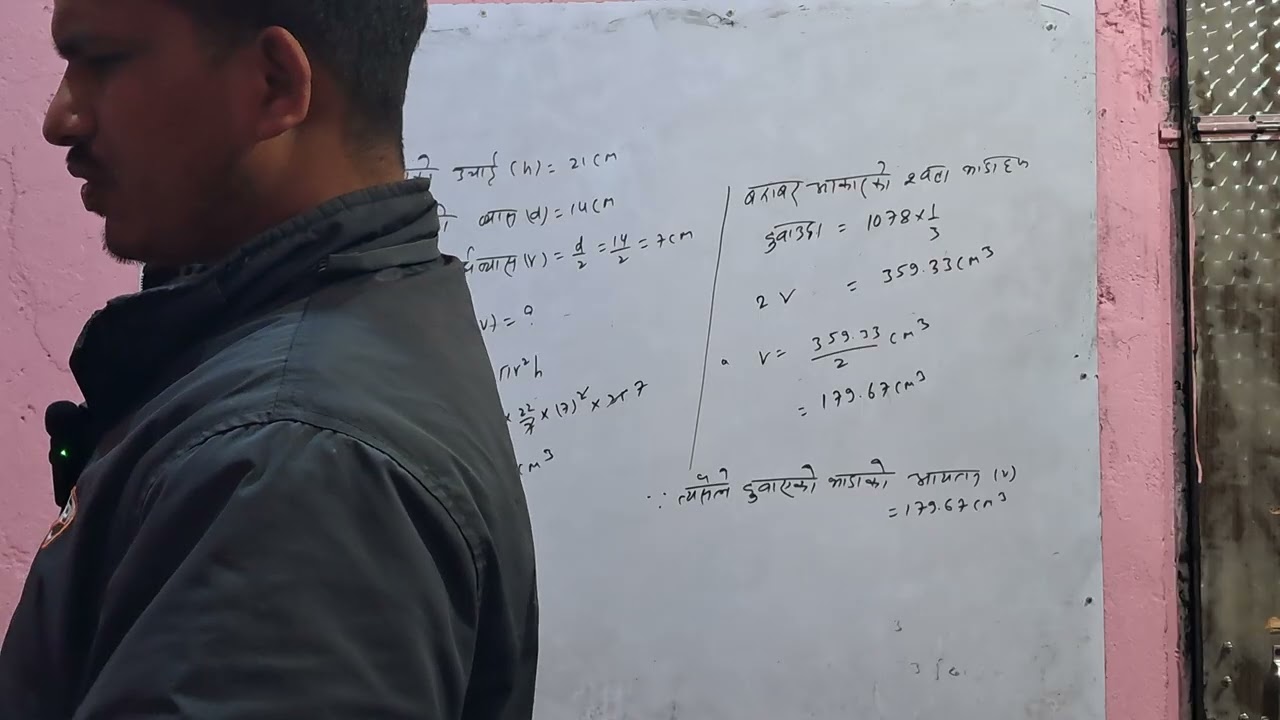 उचाई (h) = 21 cm
व्यास (d) = 14 cm
व्यास (r) = d/2 = 14/2 = 7 cm
(v) = ?
πr²h
× 22/7 × (7)² × 21 7
cm³
बराबर आकारको २ वटा भाडाहरु
डुवाउदा = 1078 × 1/3
2 V = 359.33 cm³
V = 359.33/2 cm³
= 179.67 cm³
∴ डुवाएको भाडाको आयतन (v)
= 179.67 cm³